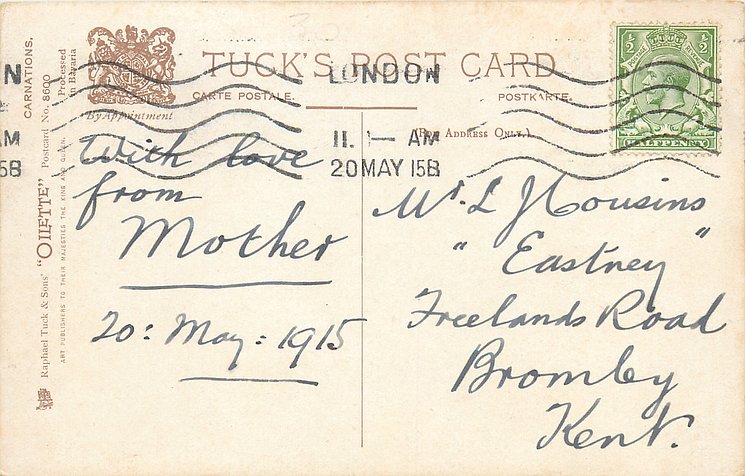 CARNATIONS.
Raphael Tuck & Sons' "OILETTE" Postcard No. 8600
Processed in Bavaria
ART PUBLISHERS TO THEIR MAJESTIES THE KING AND QUEEN.
By Appointment
TUCK'S POST CARD
CARTE POSTALE.
POSTKARTE.
(FOR ADDRESS ONLY.)
N
AM
15B
LONDON
AM
20 MAY 15B
½ ½
POSTAGE REVENUE
HALFPENNY
With love
from
Mother
20: May: 1915
Mr. L J Cousins
"Eastney"
Freelands Road
Bromley
Kent.